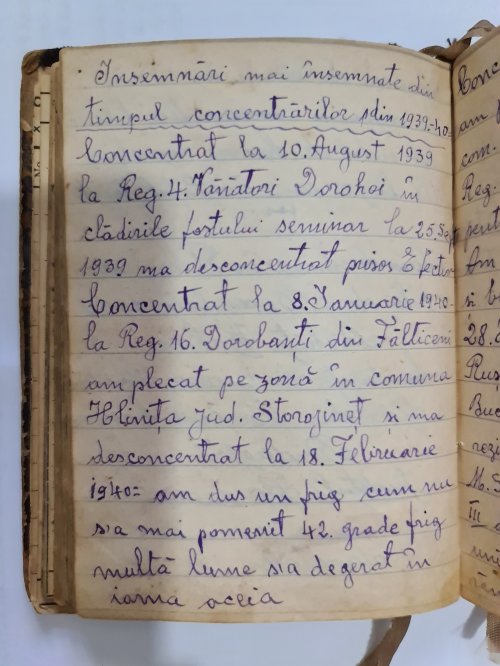 Insemnări mai însemnate din
timpul concentrărilor din 1939-40=
Concentrat la 10. August 1939
la Reg. 4. Vânători Dorohoi în
clădirile fostului seminar la 25. Sept
1939 ma desconcentrat prisos Efectiv
Concentrat la 8. Ianuarie 1940-
la Reg. 16. Dorobanți din Fălticeni
am plecat pe zonă în comuna
Hlinița jud. Storojineț și ma
desconcentrat la 18. Februarie
1940= am dus un frig cum nu
s'a mai pomenit 42. grade frig
multă lume s'a degerat în
iarna aceia
Conc
am
com.
Reg.
pent
Am
și b
28.
Rus
Buc
rezi
16. S
III
uni